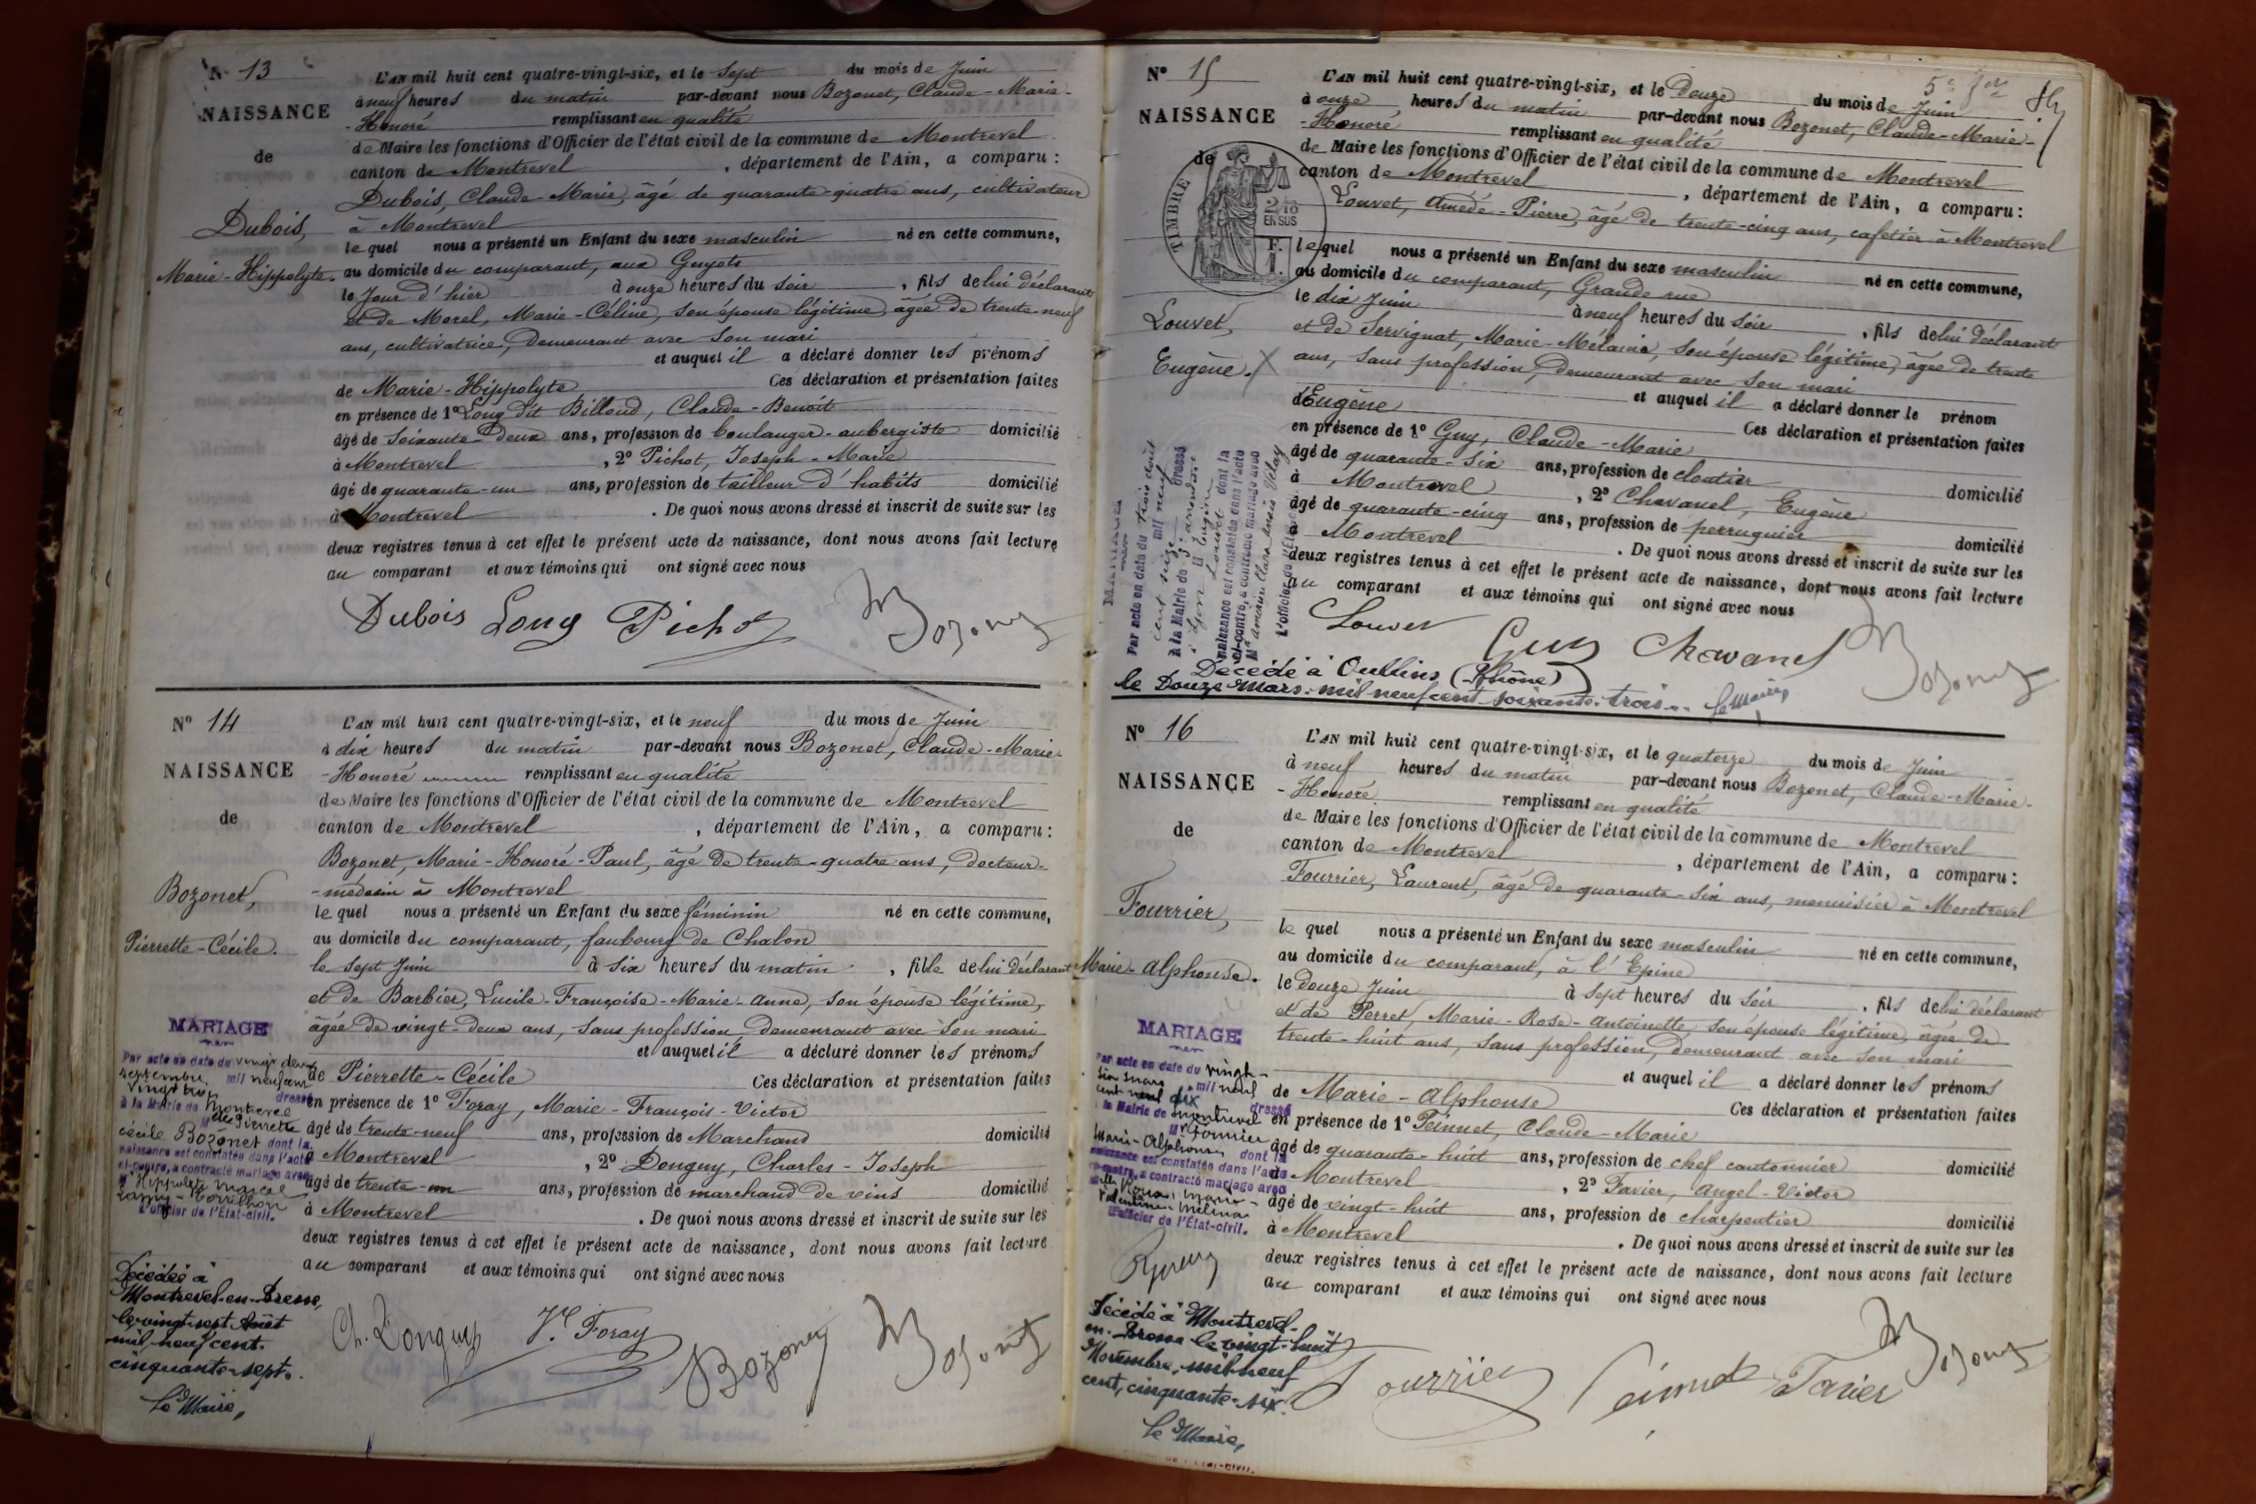 N° 13
NAISSANCE
de
Dubois,
Marie-Hippolyte.
L'AN mil huit cent quatre-vingt-six, et le Sept du mois de Juin
à neuf heures du matin par-devant nous Bozonet, Claude-Marie-
-Honoré remplissant en qualité
de Maire les fonctions d'Officier de l'état civil de la commune de Montrevel
canton de Montrevel, département de l'Ain, a comparu :
Dubois, Claude-Marie, âgé de quarante-quatre ans, cultivateur
à Montrevel
le quel nous a présenté un Enfant du sexe masculin né en cette commune,
au domicile du comparant, aux Guyots
le Jour d'hier à onze heures du soir, fils de lui déclarant
et de Morel, Marie-Céline, son épouse légitime, âgée de trente-neuf
ans, cultivatrice, demeurant avec son mari
et auquel il a déclaré donner les prénoms
de Marie-Hippolyte Ces déclaration et présentation faites
en présence de 1° Long dit Billoud, Claude-Benoît
âgé de soixante-deux ans, profession de boulanger-aubergiste domicilié
à Montrevel, 2° Pichot, Joseph-Marie
âgé de quarante-un ans, profession de tailleur d'habits domicilié
à Montrevel. De quoi nous avons dressé et inscrit de suite sur les
deux registres tenus à cet effet le présent acte de naissance, dont nous avons fait lecture
au comparant et aux témoins qui ont signé avec nous
Dubois Long Pichot Bozonet
N° 14
NAISSANCE
de
Bozonet,
Pierrette-Cécile.
L'AN mil huit cent quatre-vingt-six, et le neuf du mois de Juin
à dix heures du matin par-devant nous Bozonet, Claude-Marie-
-Honoré remplissant en qualité
de Maire les fonctions d'Officier de l'état civil de la commune de Montrevel
canton de Montrevel, département de l'Ain, a comparu :
Bozonet, Marie-Honoré-Paul, âgé de trente-quatre ans, docteur-
-médecin à Montrevel
le quel nous a présenté un Enfant du sexe féminin né en cette commune,
au domicile du comparant, faubourg de Chalon
le sept Juin à six heures du matin, fille de lui déclarant
et de Barbier, Lucile-Françoise-Marie-Anne, son épouse légitime,
âgée de vingt-deux ans, sans profession, demeurant avec son mari
et auquel il a déclaré donner les prénoms
de Pierrette-Cécile Ces déclaration et présentation faites
en présence de 1° Foray, Marie-François-Victor
âgé de trente-neuf ans, profession de Marchand domicilié
à Montrevel, 2° Donguy, Charles-Joseph
âgé de trente-un ans, profession de marchand de vins domicilié
à Montrevel. De quoi nous avons dressé et inscrit de suite sur les
deux registres tenus à cet effet le présent acte de naissance, dont nous avons fait lecture
au comparant et aux témoins qui ont signé avec nous
Ch. Donguy Vr Foray Bozonet Bozonet
MARIAGE
Par acte en date du vingt deux
septembre mil neuf cent
vingt trois dressé
à la Mairie de Montrevel
Melle Pierrette
cécile Bozonet dont la
naissance est constatée dans l'acte
ci-contre, a contracté mariage avec
Mr Hippolyte Marcel
L'officier de l'État-civil.
Décédée à
Montrevel-en-Bresse,
le vingt-sept Août
mil neuf cent
cinquante-sept.
Le Maire,
N° 15
NAISSANCE
de
TIMBRE
2/10
EN SUS
Louvet,
Eugène.
L'AN mil huit cent quatre-vingt-six, et le Douze du mois de Juin
à onze heures du matin par-devant nous Bozonet, Claude-Marie-
-Honoré remplissant en qualité
de Maire les fonctions d'Officier de l'état civil de la commune de Montrevel
canton de Montrevel, département de l'Ain, a comparu :
Louvet, Amédé-Pierre, âgé de trente-cinq ans, cafetier à Montrevel
le quel nous a présenté un Enfant du sexe masculin né en cette commune,
au domicile du comparant, Grande rue
le dix Juin à neuf heures du soir, fils de lui déclarant
et de Servignat, Marie-Mélanie, son épouse légitime, âgée de trente
ans, sans profession, demeurant avec son mari
et auquel il a déclaré donner le prénom
d'Eugène Ces déclaration et présentation faites
en présence de 1° Guy, Claude-Marie
âgé de quarante-six ans, profession de cloutier domicilié
à Montrevel, 2° Chavanel, Eugène
âgé de quarante-cinq ans, profession de perruquier domicilié
à Montrevel. De quoi nous avons dressé et inscrit de suite sur les
deux registres tenus à cet effet le présent acte de naissance, dont nous avons fait lecture
au comparant et aux témoins qui ont signé avec nous
Louvet Guy Chavanel Bozonet
MARIAGE
Par acte en date du
mil neuf
cent seize dressé
à la Mairie du 3e arrondisst
Eugène
Louvet dont la
naissance est constatée dans l'acte
ci-contre, a contracté mariage avec
Décédé à Oullins (Rhône)
le Douze Mars mil neuf cent soixante-trois. Le Maire,
N° 16
NAISSANCE
de
Fourrier,
Marie-Alphonse.
L'AN mil huit cent quatre-vingt-six, et le quatorze du mois de Juin
à neuf heures du matin par-devant nous Bozonet, Claude-Marie-
-Honoré remplissant en qualité
de Maire les fonctions d'Officier de l'état civil de la commune de Montrevel
canton de Montrevel, département de l'Ain, a comparu :
Fourrier, Laurent, âgé de quarante-six ans, menuisier à Montrevel
le quel nous a présenté un Enfant du sexe masculin né en cette commune,
au domicile du comparant, à l'Epine
le douze Juin à sept heures du soir, fils de lui déclarant
et de Perret, Marie-Rose-Antoinette, son épouse légitime, âgée de
trente-huit ans, sans profession, demeurant avec son mari
et auquel il a déclaré donner les prénoms
de Marie-Alphonse Ces déclaration et présentation faites
en présence de 1° Péinnet, Claude-Marie
âgé de quarante-huit ans, profession de chef cantonnier domicilié
à Montrevel, 2° Favier, Angel-Victor
âgé de vingt-huit ans, profession de charpentier domicilié
à Montrevel. De quoi nous avons dressé et inscrit de suite sur les
deux registres tenus à cet effet le présent acte de naissance, dont nous avons fait lecture
au comparant et aux témoins qui ont signé avec nous
Fourrier Favier Bozonet
MARIAGE
Par acte en date du vingt-
six mars mil neuf
cent dix dressé
à la Mairie de Montrevel
Mr Fourrier
Marie-Alphonse dont la
naissance est constatée dans l'acte
ci-contre, a contracté mariage avec
L'officier de l'État-civil.
Décédé à Montrevel-
en-Bresse le vingt-huit
Novembre mil neuf
cent cinquante-six.
Le Maire,